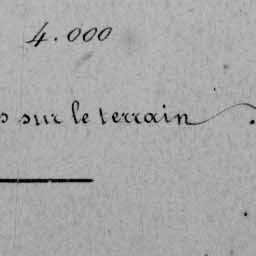 4.000
s sur le terrain